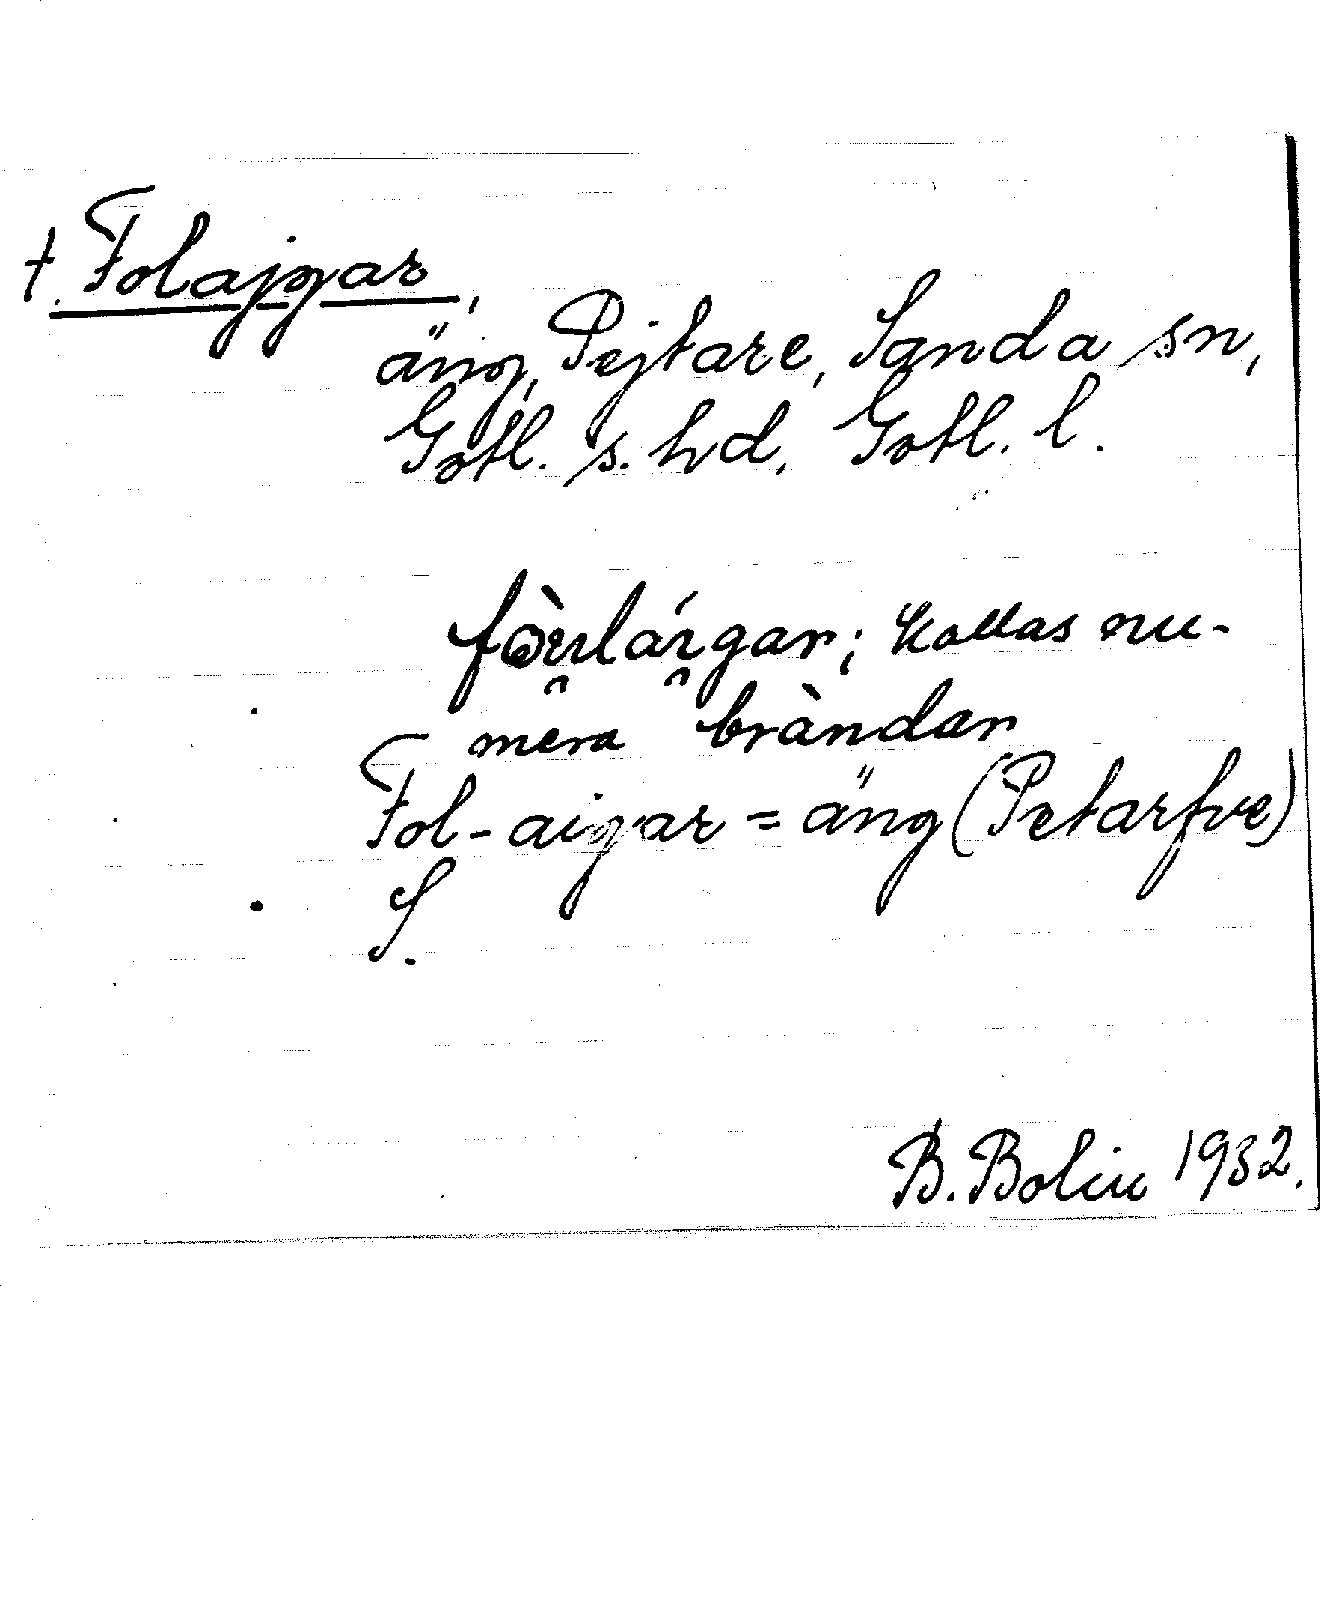 †. Folajgar,
äng, Pejtare, Sanda sn,
Gotl. s. hd. Gotl. l.
kallas nu-
mera bràndar
Fol-aigar = äng (Petarfve)
S.
B. Bolin 1932.